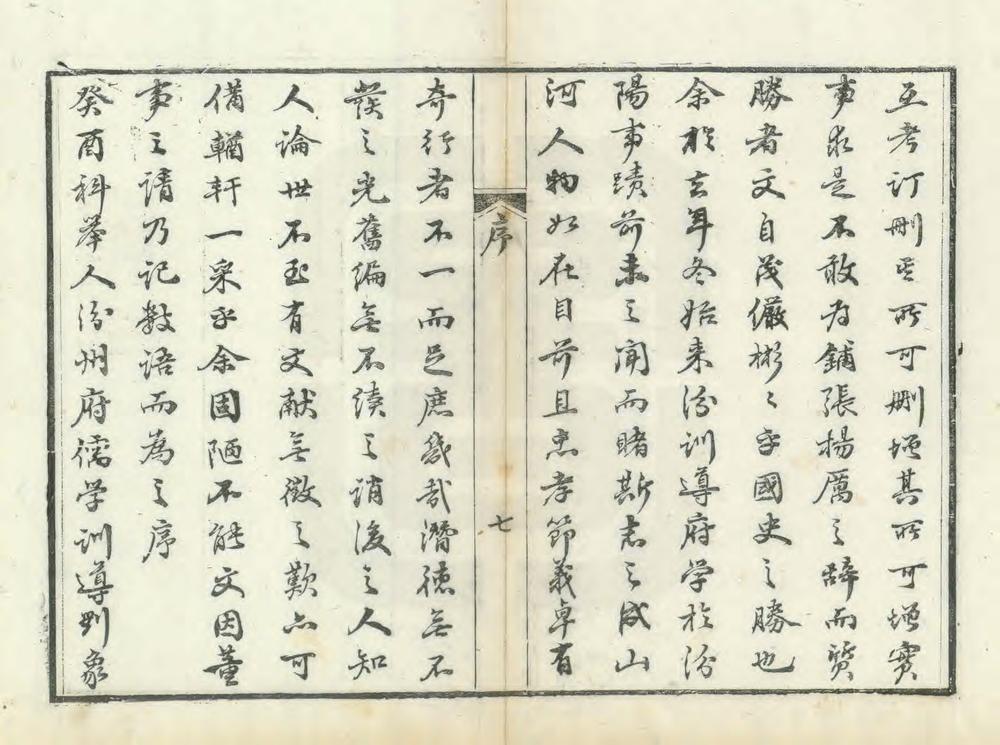 互考订刪其所可刪增其所可增實
事求是不敢为鋪張揚厲之辭而質
勝者文自茂儼彬〻乎國史之勝也
余於去年冬始来汾训導府学於汾
陽事蹟前未之闻而睹斯志之成山
河人物如在目前且忠孝節義卓有
序
七
奇行者不一而足庶幾哉潛德無不
發之光舊編無不續之誚後之人知
人論世不至有文献無徵之歎亦可
備輶轩一采乎余固陋不能文因董
事之请乃记数语而為之序
癸酉科举人汾州府儒学训導刘象